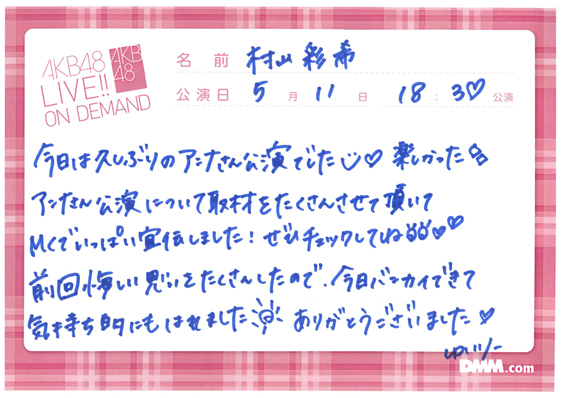 AKB48
LIVE!!
ON DEMAND
AKB
48
名前 村山彩希
公演日 5月11日 18:30公演
今日は久しぶりのアンナさん公演でした♡楽しかった
アンナさん公演について取材をたくさんさせて頂いて
MCでいっぱい宣伝しました!ぜひチェックしてね♡♡
前回悔しい思いをたくさんしたので、今日バンカイできて
気持ち的にもはれました ありがとうございました♡
ゆいりー
DMM.com